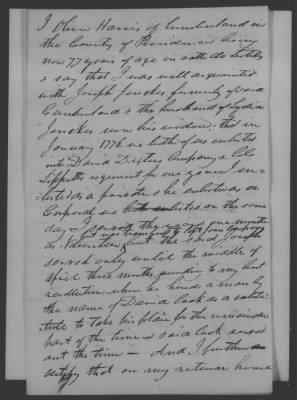 I Oliver Harris of Cumberland in
the County of Providence being
now 77 years of age on oath do testify
& say that I was well acquainted
with Joseph Jenckes formerly of said
Cumberland & the husband of Lydia
Jenckes now his widow - that in
January 1776 we both of us enlisted
into David Dexters Company & Cols
Lippitts regiment for one year I en-
listed as a private & he enlisted as a
Corporal we both enlisted on the same
day - I served the year one month
but the said Joseph
served only until the middle of
April three months, according to my best
recollection when he hired a man by
the name of David Cook as a substi-
tute to take his place for the remainder
part of the time & said Cook served
out the time - And I further
certify that on my return home